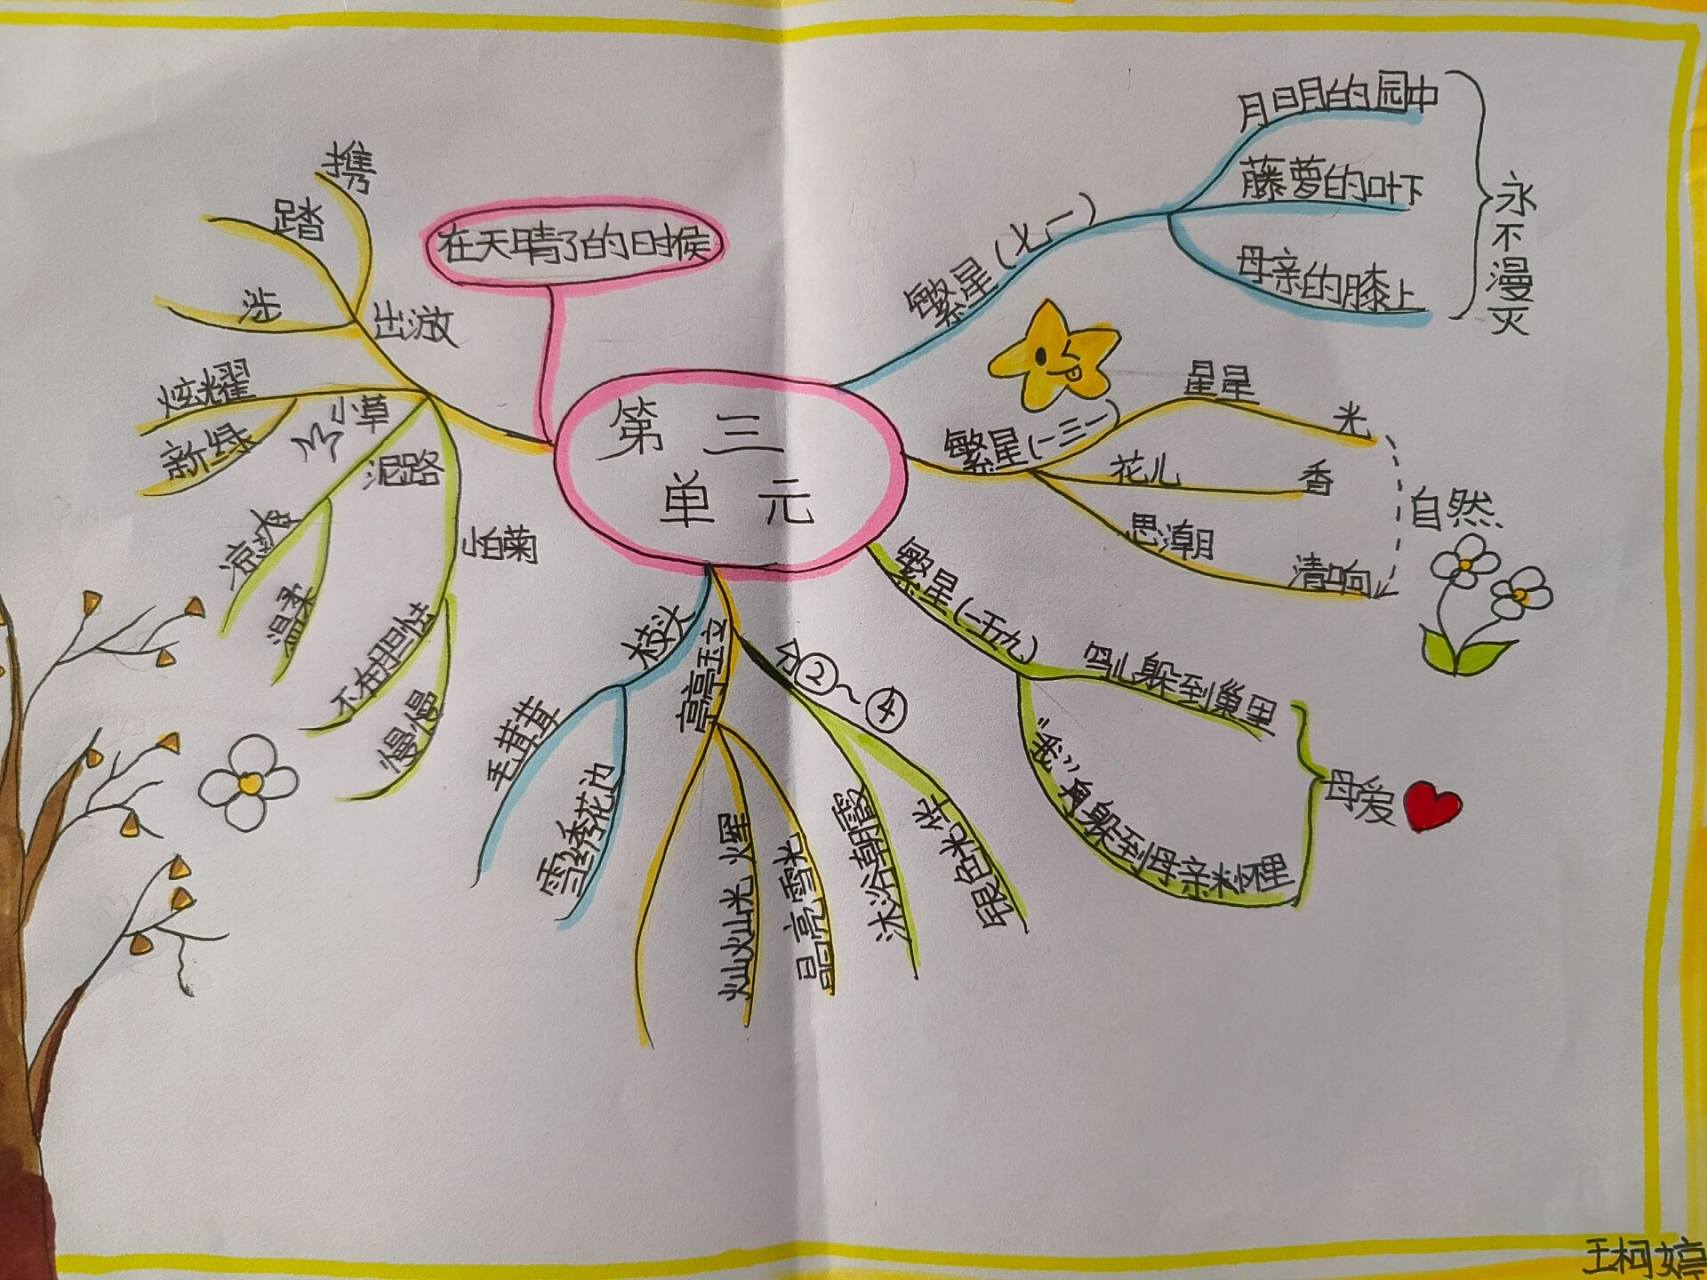 第三
单元
在天晴了的时候
出游
携
踏
涉
小草
炫耀
新绿
泥路
凉爽
温柔
怕菊
不在胆怯
慢慢
繁星(七一)
月明的园中
藤萝的叶下
母亲的膝上
永不漫灭
繁星(一三一)
星星
光
花儿
香
思潮
清响
自然
繁星(一五九)
鸟儿躲到巢里
"我"
躲到母亲怀里
母爱
枝头
毛茸茸
雪绣花边
亭亭玉立
灿灿光辉
晶亮雪光
分②~④
沐浴朝霞
银色光华
王柯婷